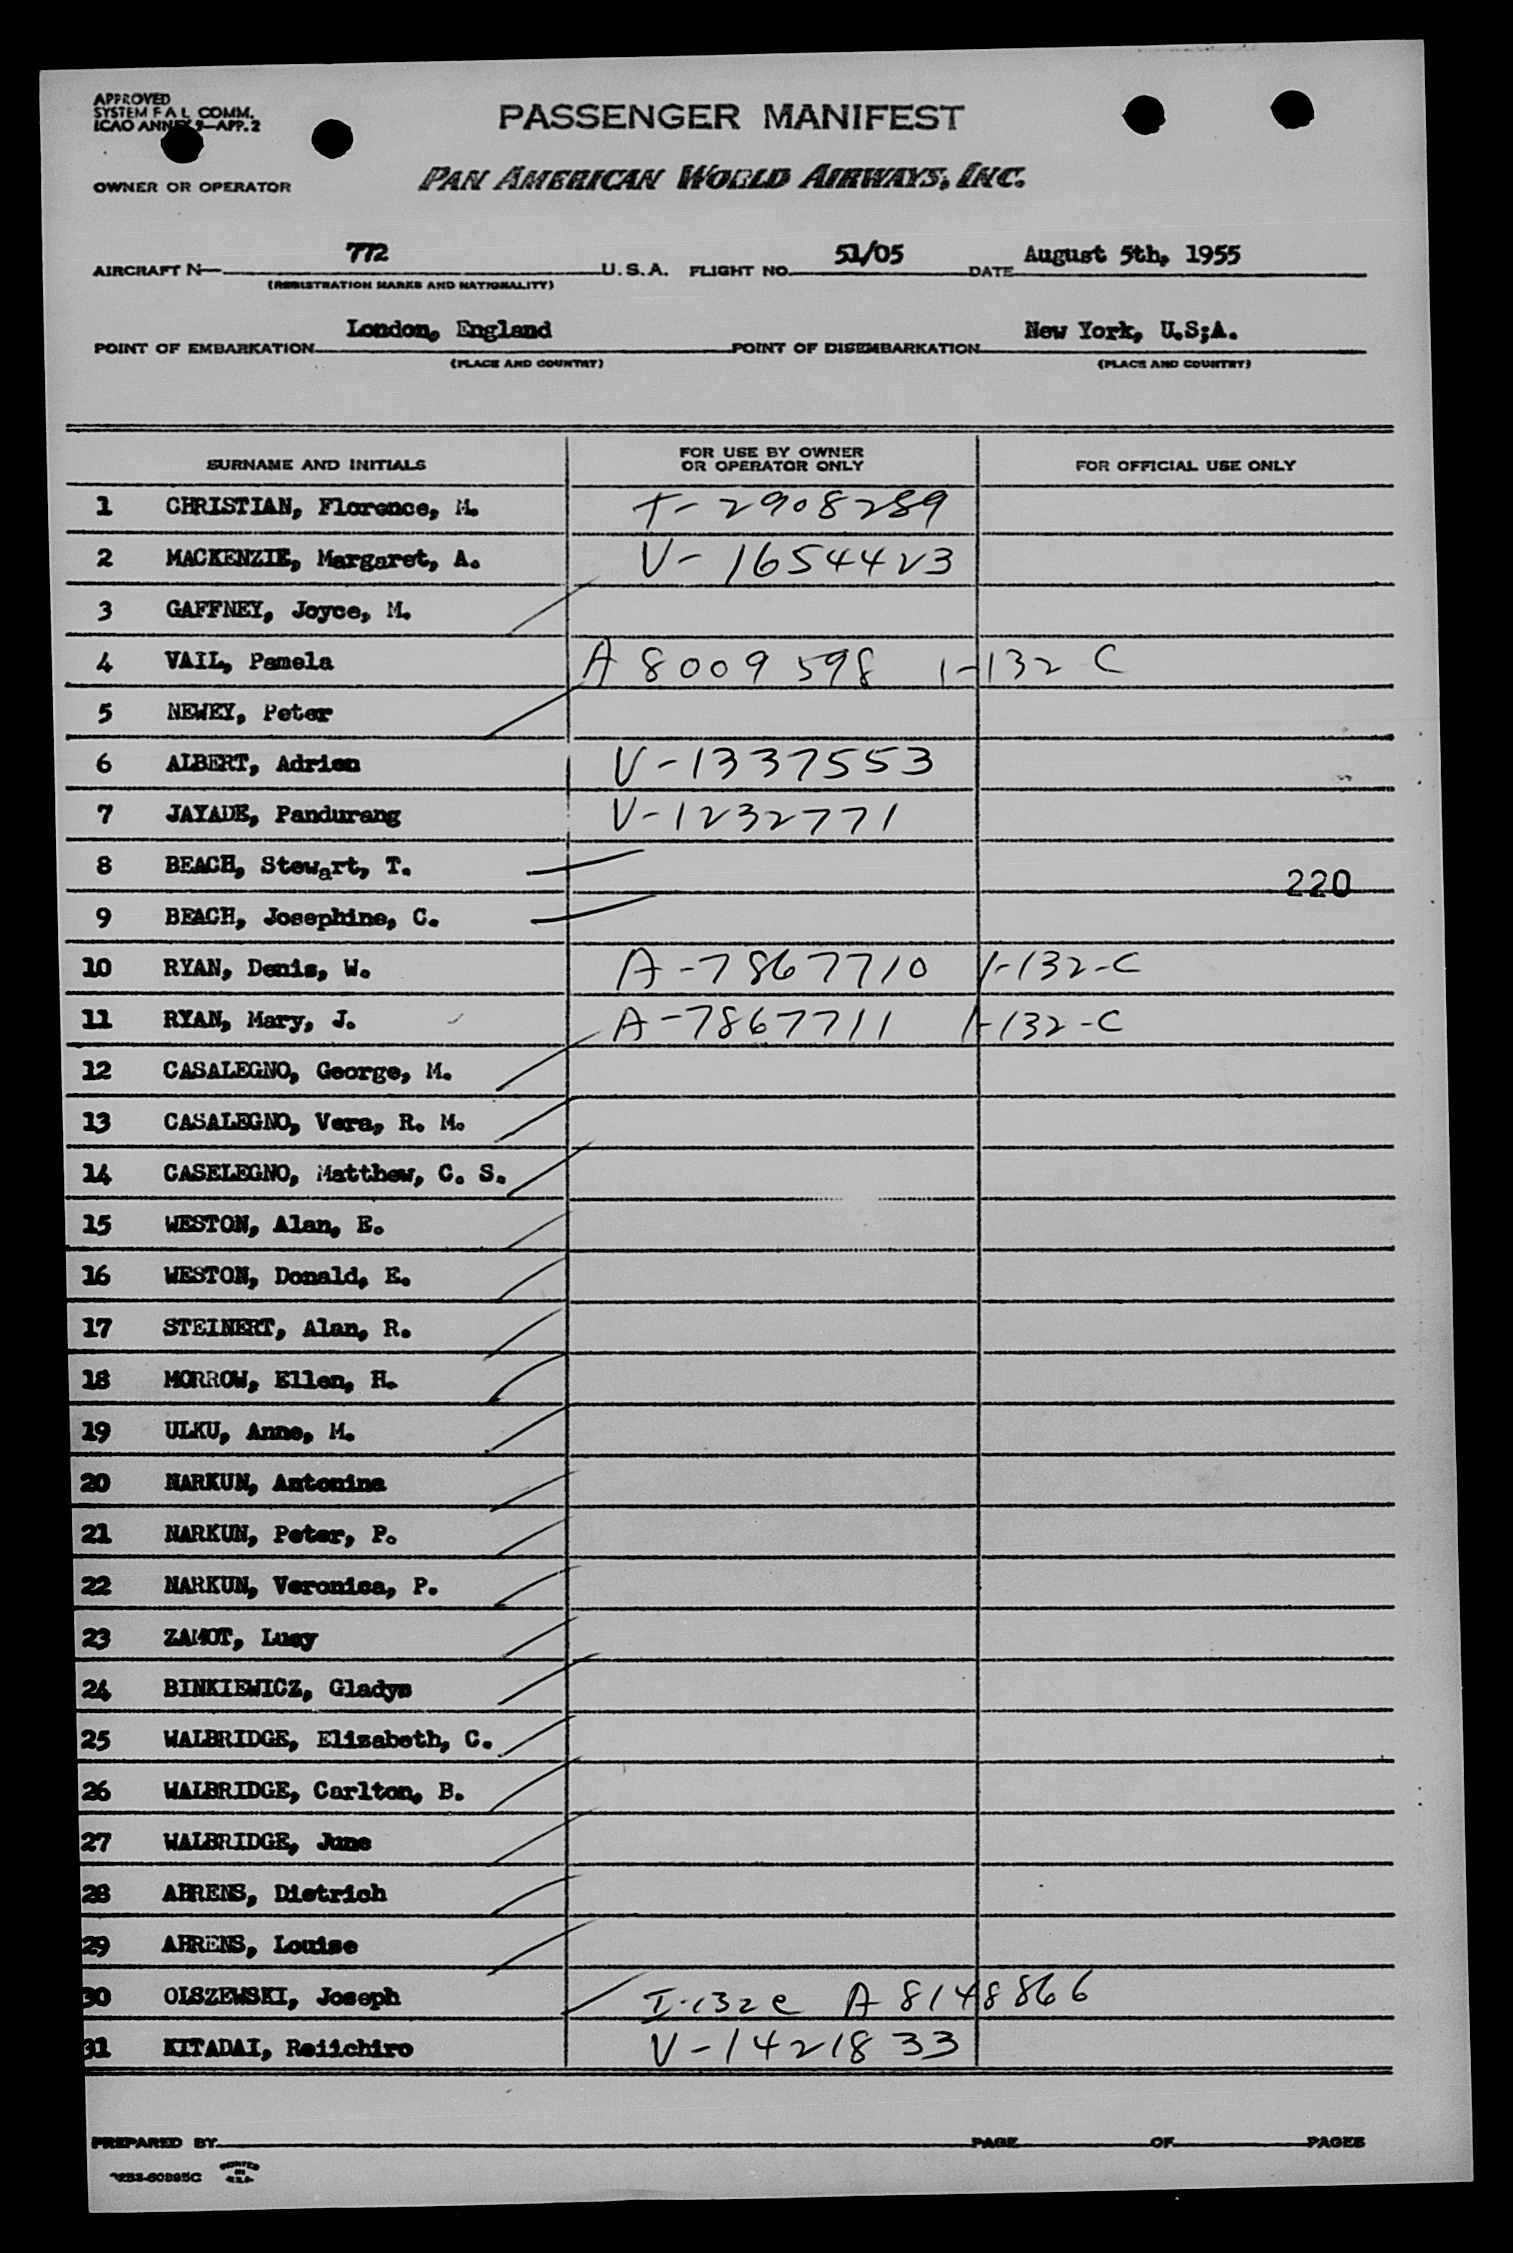 APPROVED
SYSTEM F A L COMM.
ICAO ANNEX 9—APP. 2
PASSENGER MANIFEST
OWNER OR OPERATOR PAN AMERICAN WORLD AIRWAYS, INC.
AIRCRAFT N 772 U.S.A. FLIGHT NO. 51/05 DATE August 5th, 1955
(REGISTRATION MARKS AND NATIONALITY)
POINT OF EMBARKATION London, England POINT OF DISEMBARKATION New York, U.S;A.
(PLACE AND COUNTRY) (PLACE AND COUNTRY)
SURNAME AND INITIALS FOR USE BY OWNER OR OPERATOR ONLY FOR OFFICIAL USE ONLY
1 CHRISTIAN, Florence, M. T-2908289
2 MACKENZIE, Margaret, A. V-1654423
3 GAFFNEY, Joyce, M.
4 VAIL, Pamela A 8009 598 1-132 C
5 NEWEY, Peter
6 ALBERT, Adrien V-1337553
7 JAYADE, Pandurang V-1232771
8 BEACH, Stewart, T.
220
9 BEACH, Josephine, C.
10 RYAN, Denis, W. A-7867710 1-132-C
11 RYAN, Mary, J. A-7867711 1-132-C
12 CASALEGNO, George, M.
13 CASALEGNO, Vera, R. M.
14 CASELEGNO, Matthew, C. S.
15 WESTON, Alan, E.
16 WESTON, Donald, E.
17 STEINERT, Alan, R.
18 MORROW, Ellen, H.
19 ULKU, Anne, M.
20 NARKUN, Antonina
21 NARKUN, Peter, P.
22 NARKUN, Veronica, P.
23 ZAMOT, Lucy
24 BINKIEWICZ, Gladys
25 WALBRIDGE, Elizabeth, C.
26 WALBRIDGE, Carlton, B.
27 WALBRIDGE, June
28 AHRENS, Dietrich
29 AHRENS, Louise
30 OLSZEWSKI, Joseph I-132c A 8148866
31 KITADAI, Reiichiro V-1421833
PREPARED BY PAGE OF PAGES
PRINTED IN U.S.A.